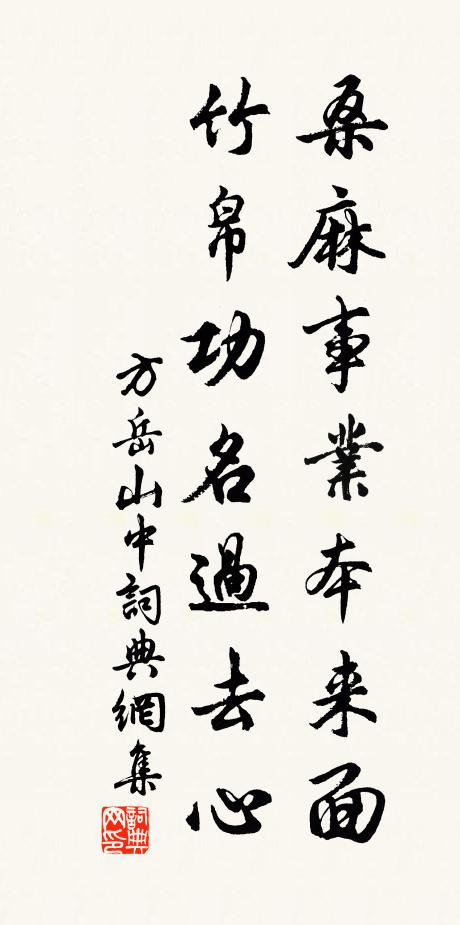 桑麻事業本来面
竹帛功名過去心
方岳山中詞典網集
詞典网印